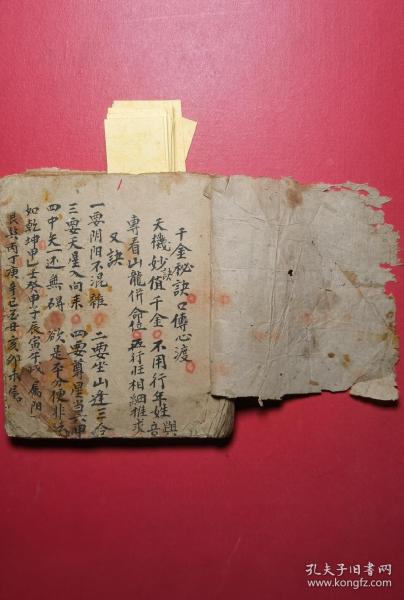 千金秘訣口傳心渡
天機妙訣值千金 不用行年姓與音
專看山龍併命位 五行旺相細推求
又訣
一要阴阳不混雜 二要坐山逢三合
三要天星入向来 四要尊星當六甲
四中失一还無碍
如乾坤甲壬癸申子辰寅午戌為阳
艮巽丙丁庚辛巳酉丑亥卯未為
孔夫子旧书网
www.kongfz.com